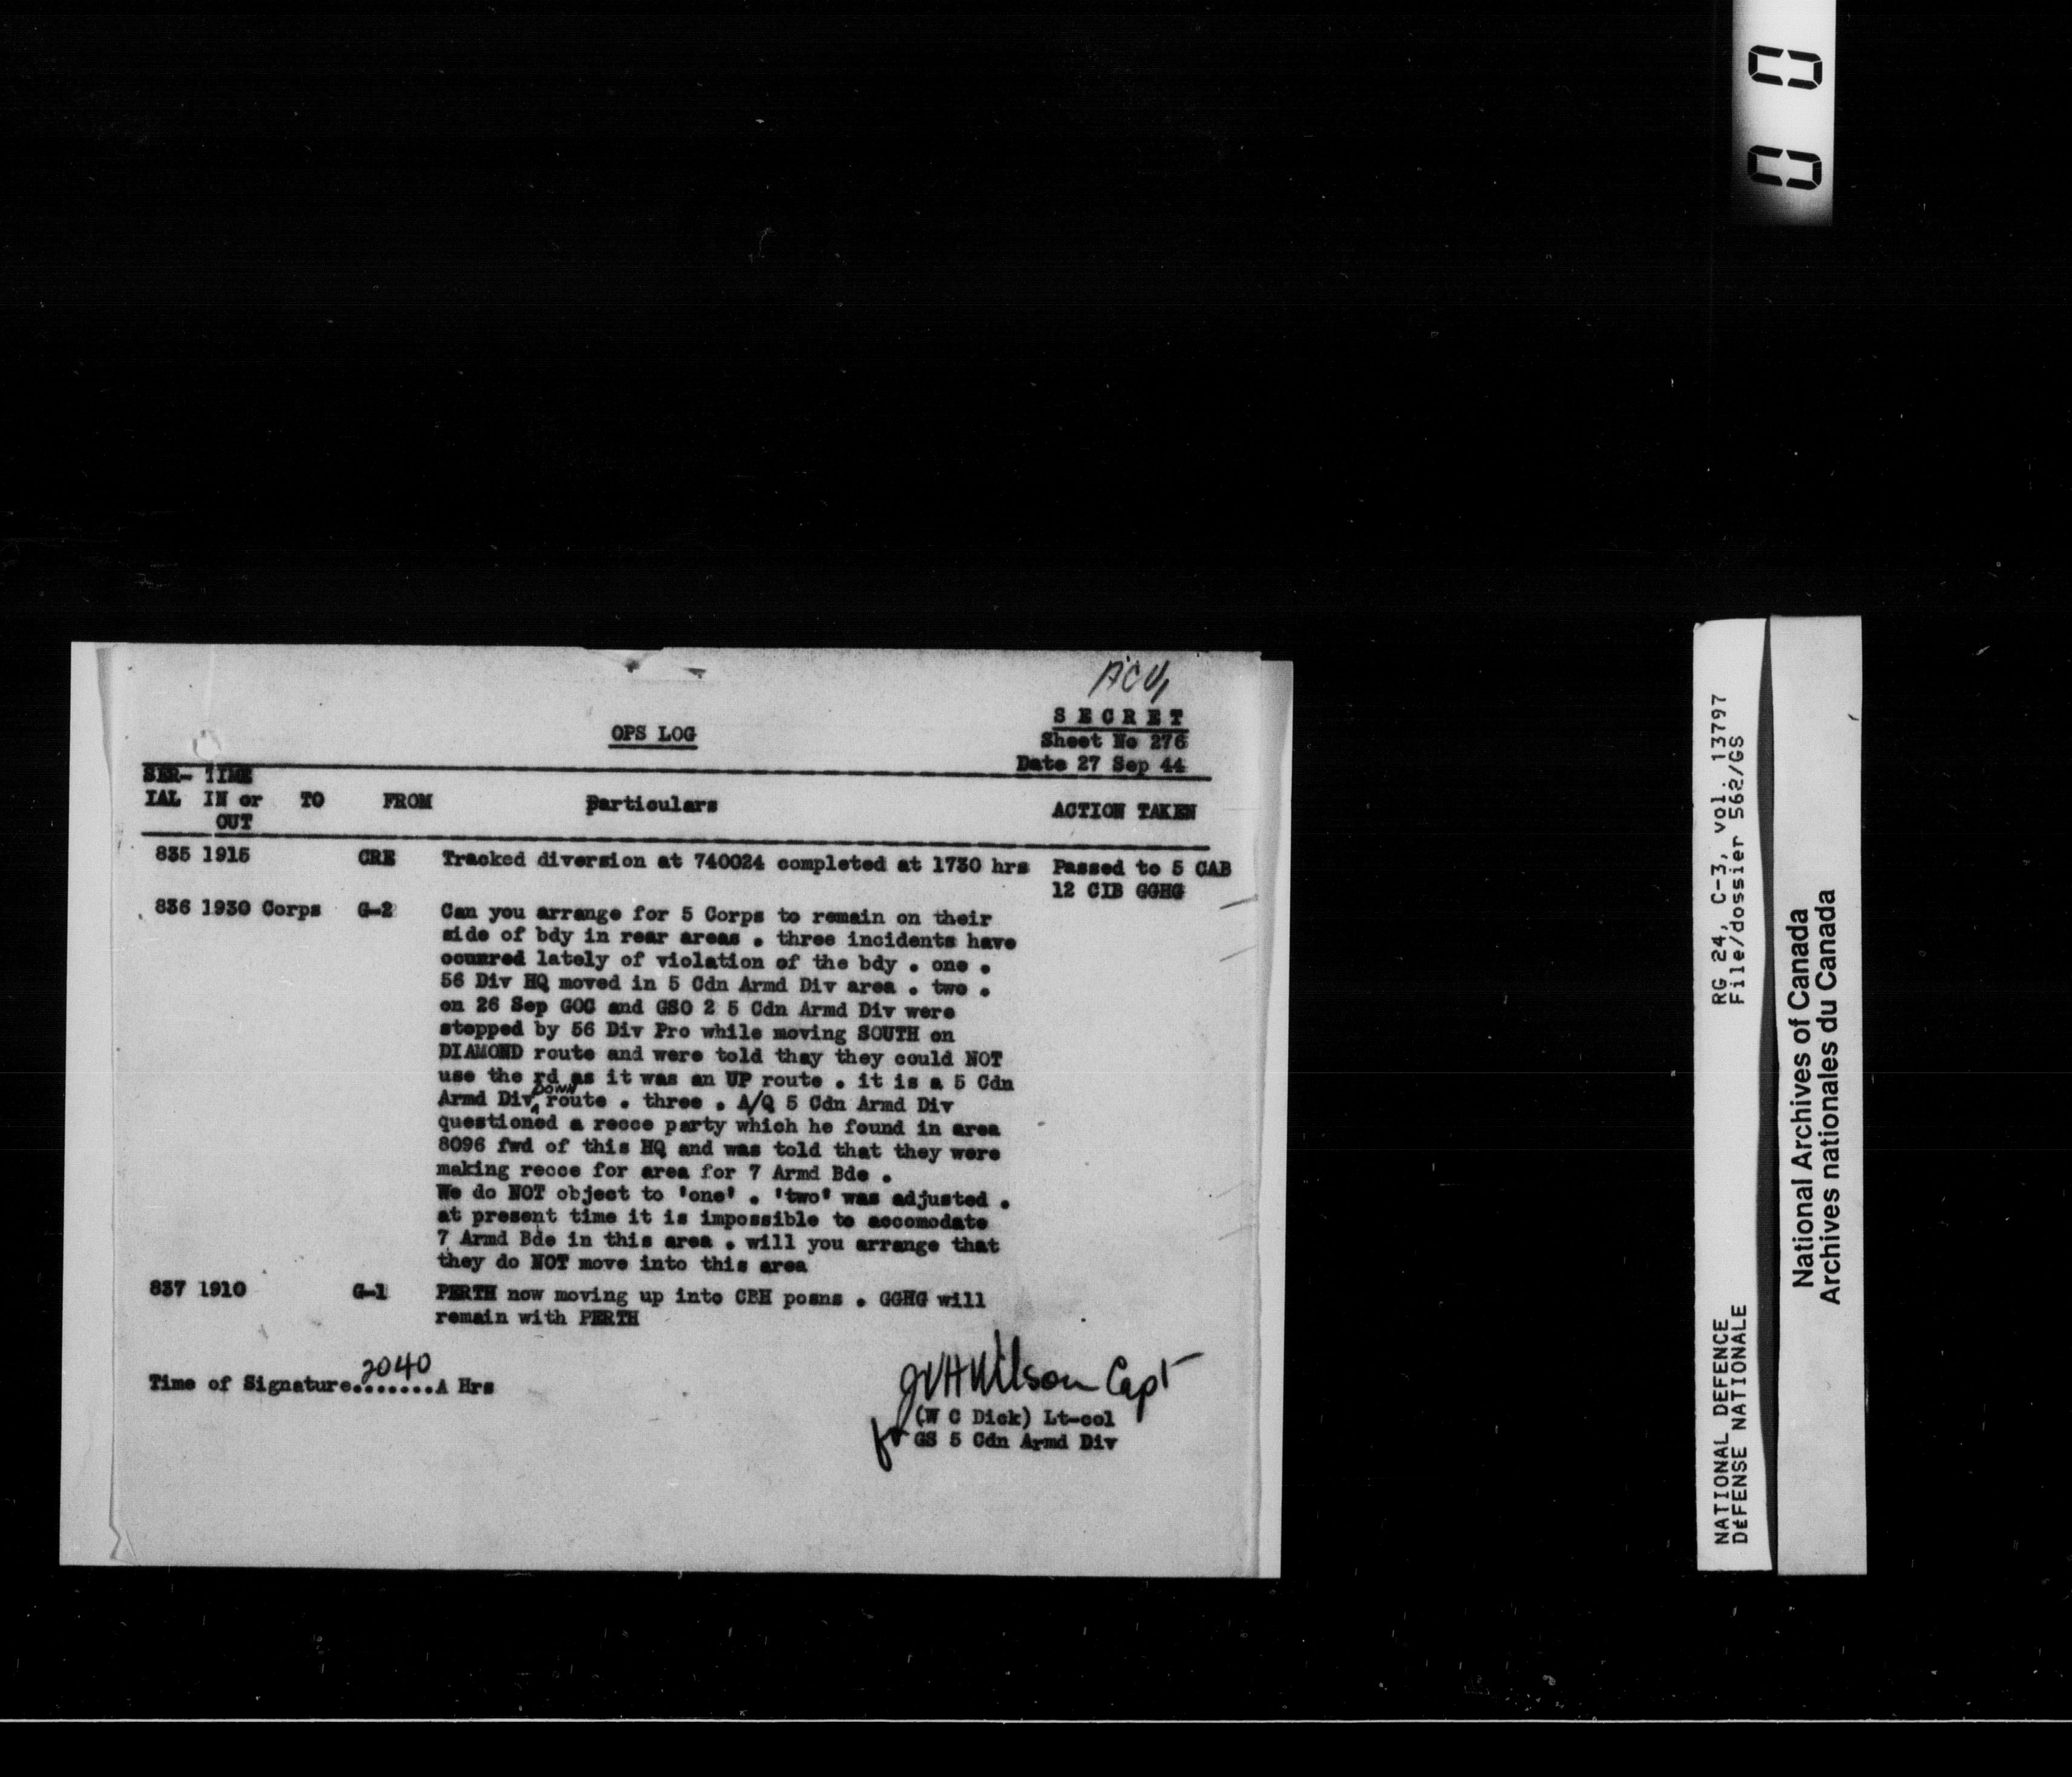 0 0
ACV,
S E C R E T
OPS LOG
Sheet No 276
Date 27 Sep 44
SER- TIME
IAL IN or TO FROM Particulars ACTION TAKEN
OUT
835 1915 CRE Tracked diversion at 740024 completed at 1730 hrs Passed to 5 CAB
12 CIB GGHG
836 1930 Corps G-2 Can you arrange for 5 Corps to remain on their
side of bdy in rear areas . three incidents have
ocurred lately of violation of the bdy . one .
56 Div HQ moved in 5 Cdn Armd Div area . two .
on 26 Sep GOC and GSO 2 5 Cdn Armd Div were
stopped by 56 Div Pro while moving SOUTH on
DIAMOND route and were told thay they could NOT
use the rd as it was an UP route . it is a 5 Cdn
Armd Div DOWN route . three . A/Q 5 Cdn Armd Div
questioned a recce party which he found in area
8096 fwd of this HQ and was told that they were
making recce for area for 7 Armd Bde .
We do NOT object to 'one' . 'two' was adjusted .
at present time it is impossible to accomodate
7 Armd Bde in this area . will you arrange that
they do NOT move into this area
837 1910 G-1 PERTH now moving up into CBH posns . GGHG will
remain with PERTH
Time of Signature.2040.A Hrs
JVHWilson Capt
(W C Dick) Lt-col
for GS 5 Cdn Armd Div
RG 24, C-3, vol. 13797
File/dossier 562/GS
NATIONAL DEFENCE
DÉFENSE NATIONALE
National Archives of Canada
Archives nationales du Canada